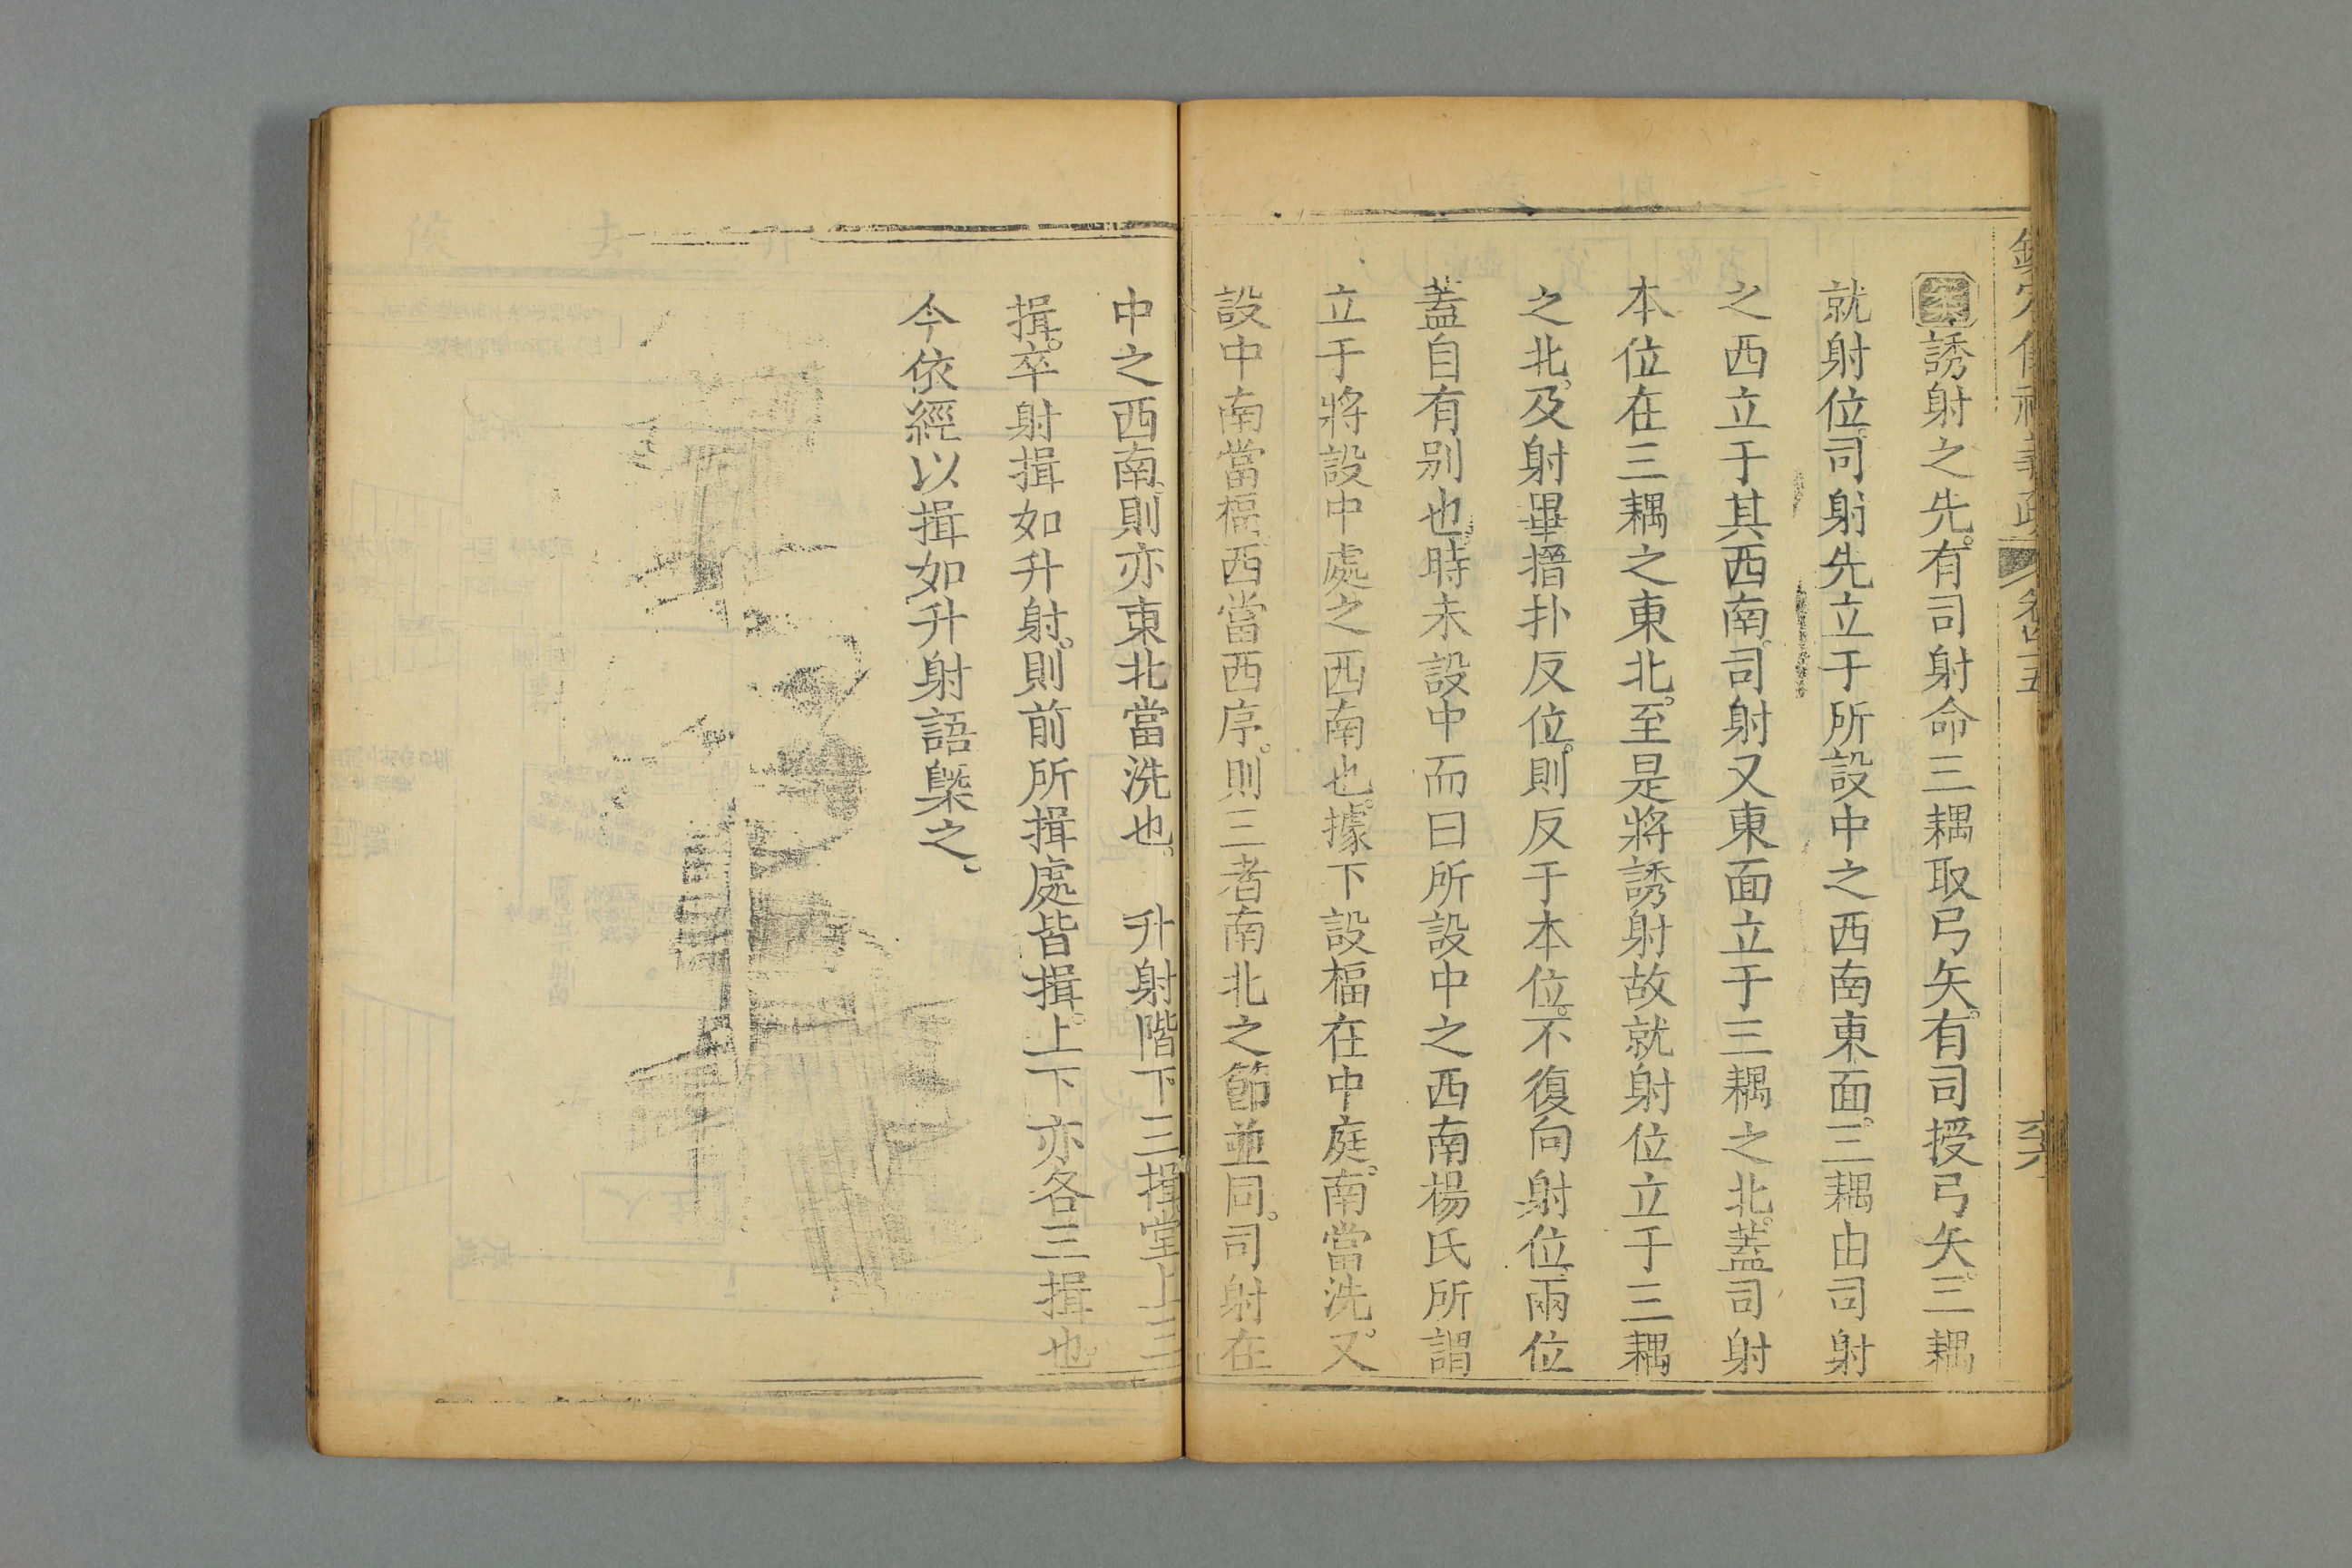 誘射之先。有司射命三耦取弓矢。有司授弓矢。三耦
就射位。司射先立于所設中之西南東面。三耦由司射
之西立于其西南。司射又東面立于三耦之北。蓋司射
本位在三耦之東北。至是將誘射故就射位立于三耦
之北。及射畢搢扑反位。則反于本位。不復向射位。兩位
蓋自有別也。時未設中而曰所設中之西南楊氏所謂
立于將設中處之西南也。據下設楅在中庭。南當洗。又
設中南當楅。西當西序。則三者南北之節並同。司射在
中之西南。則亦東北當洗也。　升射階下三揖堂上三
揖。卒射揖如升射。則前所揖處皆揖。上下亦各三揖也。
今依經以揖如升射語槩之。